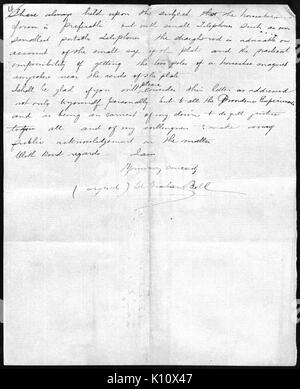 I have always held upon the subject that the horseshoe
form is preferable but with small Telephones such as our
smallest portable Telephone the straight rod is admissible on
account of the small size of the plate and the practical
impossibility of getting the two poles of a horseshoe magnet
anywhere near the centre of the plate.
I shall be glad if you will please consider this letter as addressed
not only to yourself personally but to all the Providence Experimenters
and as being an earnest of my desire to do full justice
to you all and of my willingness to make any
public acknowledgement in the matter
With kind regards I am
Yours sincerely
(signed) A. Graham Bell
alamy
K10X47